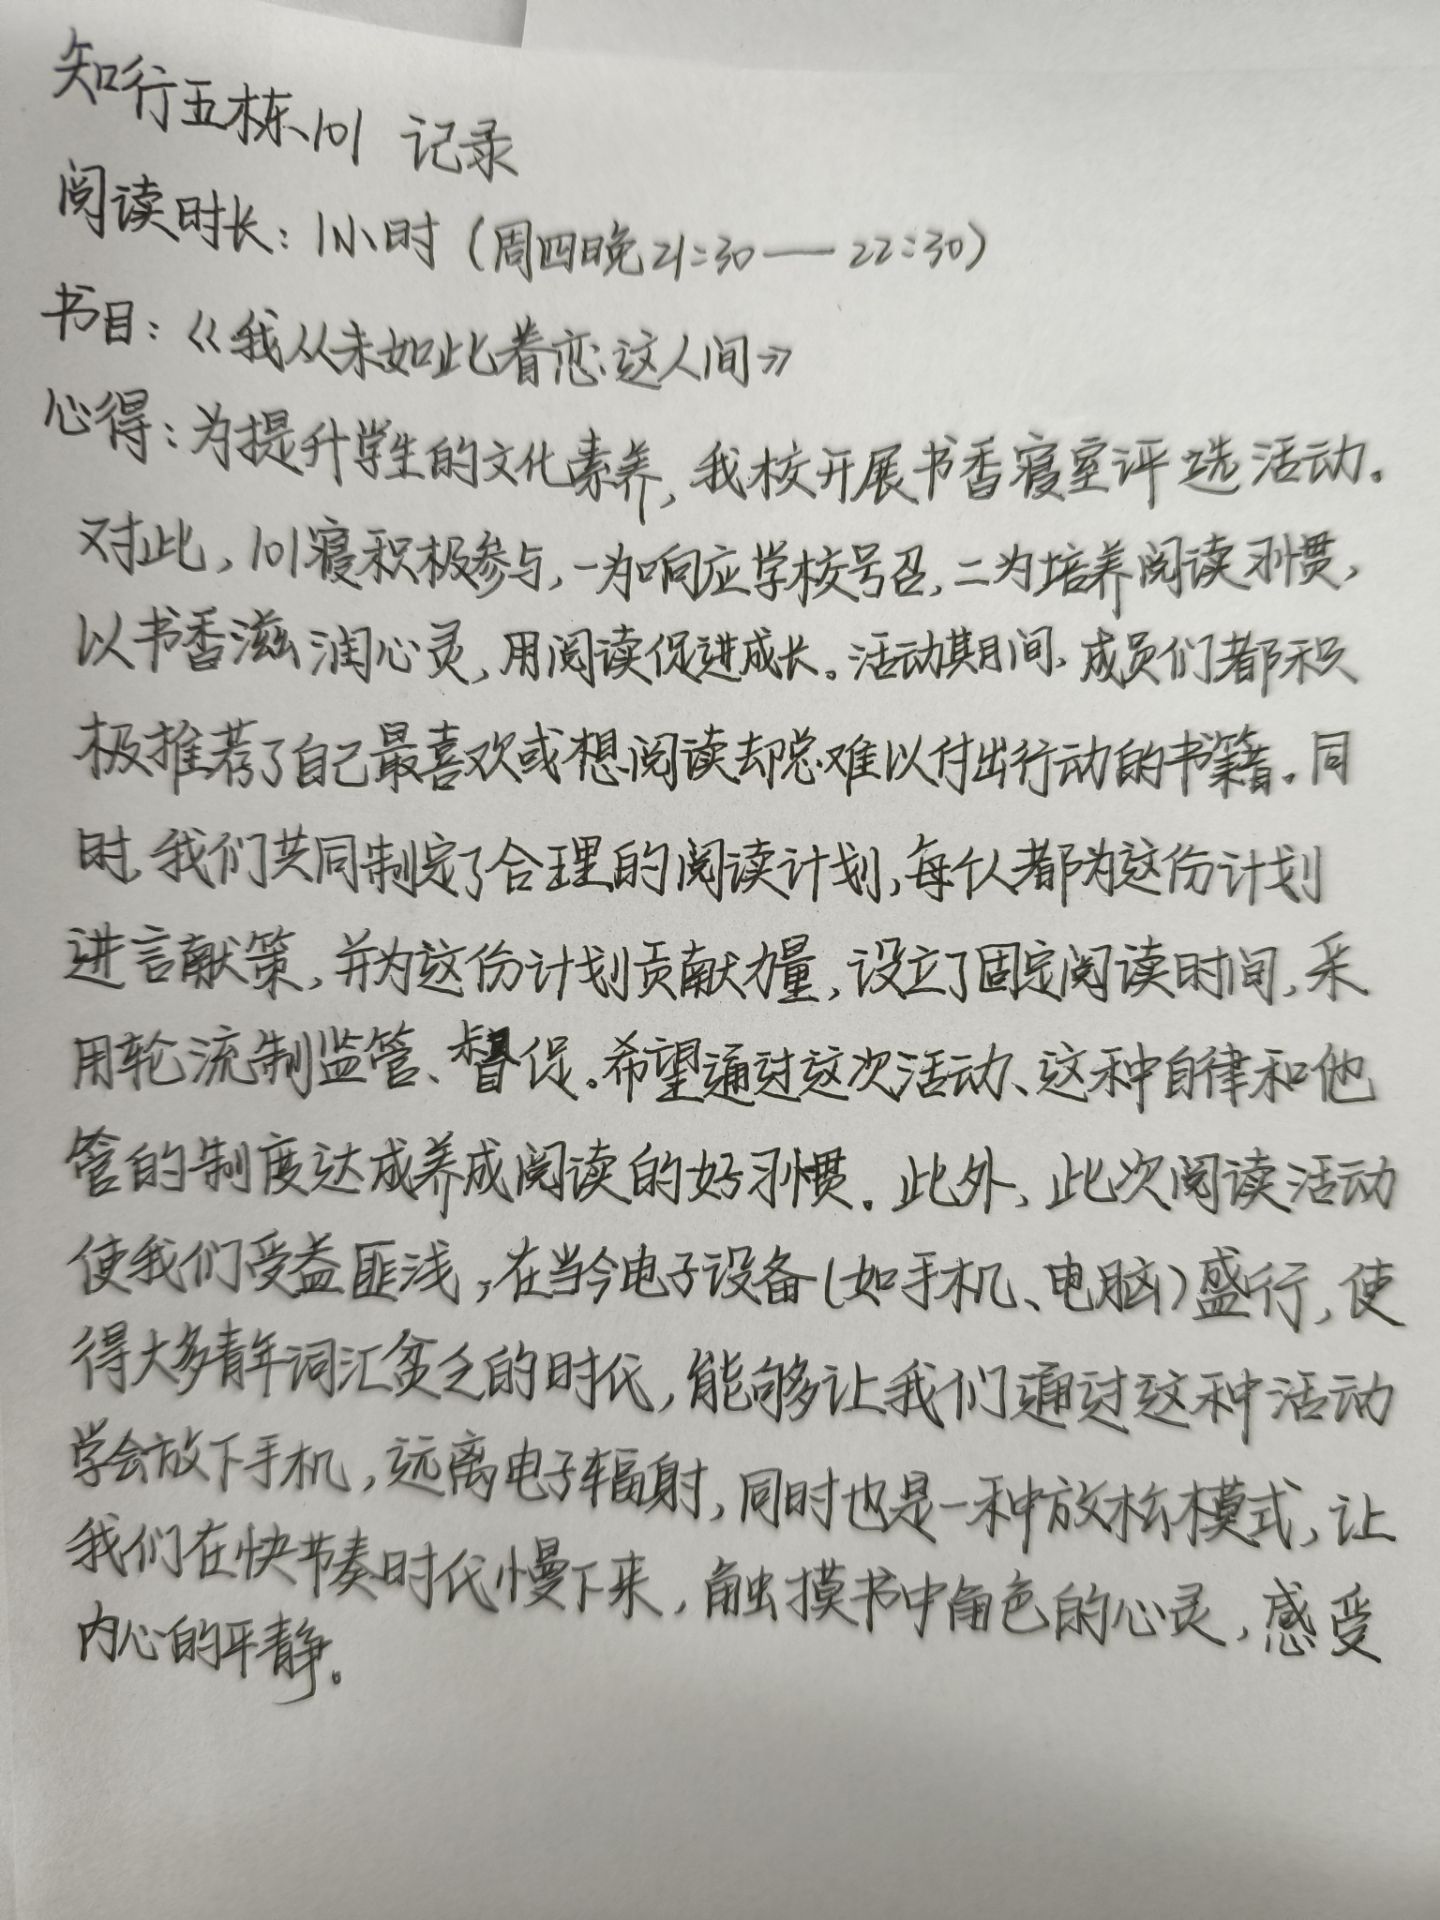 知行五栋101 记录
阅读时长：1小时（周四晚21:30——22:30）
书目：《我从未如此眷恋这人间》
心得：为提升学生的文化素养，我校开展书香寝室评选活动。
对此，101寝积极参与，一为响应学校号召，二为培养阅读习惯，
以书香滋润心灵，用阅读促进成长。活动期间，成员们都积
极推荐了自己最喜欢或想阅读却总难以付出行动的书籍。同
时，我们共同制定了合理的阅读计划，每个人都为这份计划
进言献策，并为这份计划贡献力量，设立了固定阅读时间，采
用轮流制监管、督促。希望通过这次活动、这种自律和他
管的制度达成养成阅读的好习惯。此外，此次阅读活动
使我们受益匪浅，在当今电子设备（如手机、电脑）盛行，使
得大多青年词汇贫乏的时代，能够让我们通过这种活动
学会放下手机，远离电子辐射，同时也是一种放松模式，让
我们在快节奏时代慢下来，触摸书中角色的心灵，感受
内心的平静。